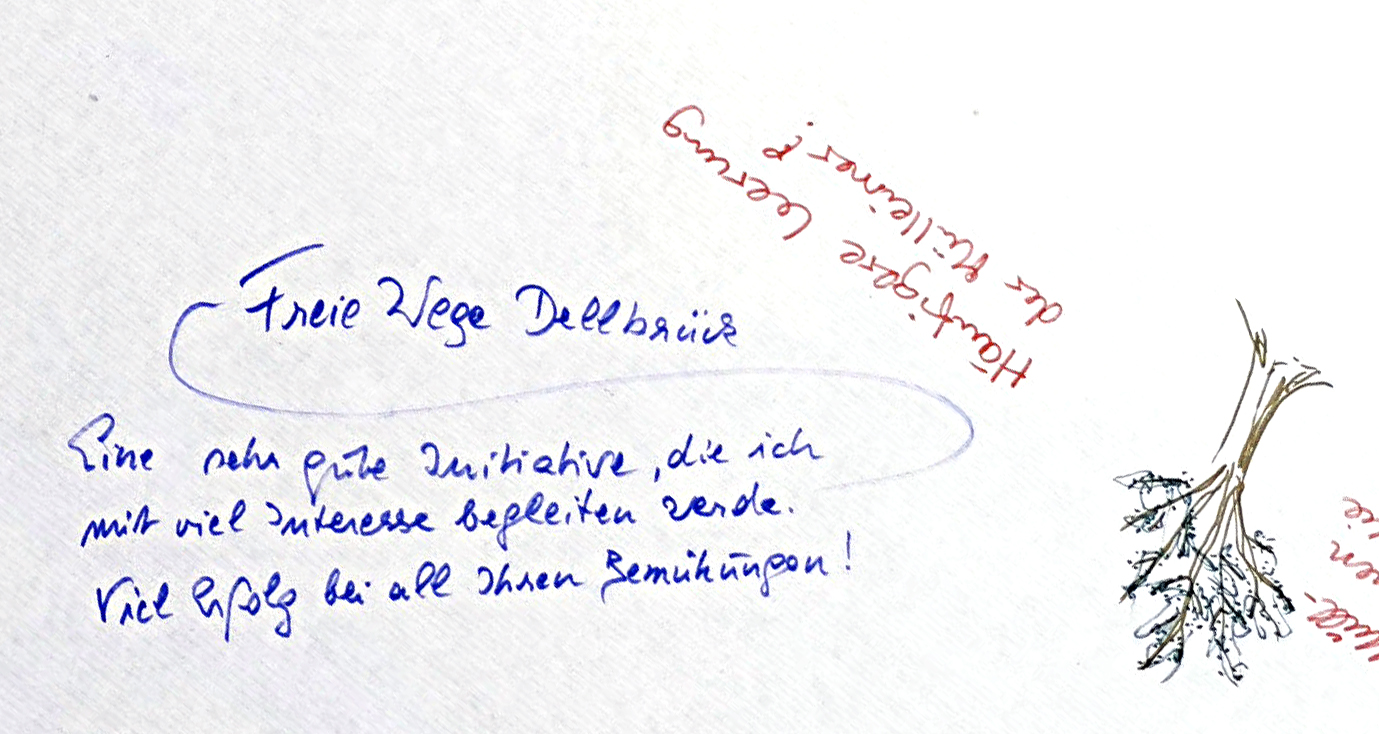 Freie Wege Dellbrück
Eine sehr gute Initiative, die ich
mit viel Interesse begleiten werde.
Viel Erfolg bei all Ihren Bemühungen!
Häufigere Leerung
der Mülleimer!